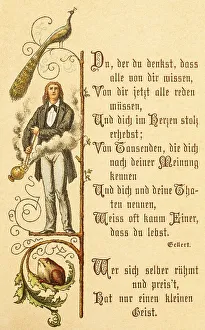 Du, der du denkst, dass
alle von dir wissen,
Von dir jetzt alle reden
müssen,
Und dich im Herzen stolz
erhebst;
Von Tausenden, die dich
nach deiner Meinung
kennen
Und dich und deine Tha-
ten nennen,
Weiss oft kaum Einer,
dass du lebst.
Gellert.
Wer sich selber rühmt
und preis't,
Hat nur einen kleinen
Geist.